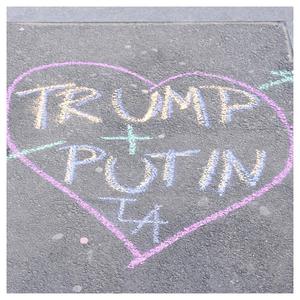 TRUMP
+
PUTIN
TA